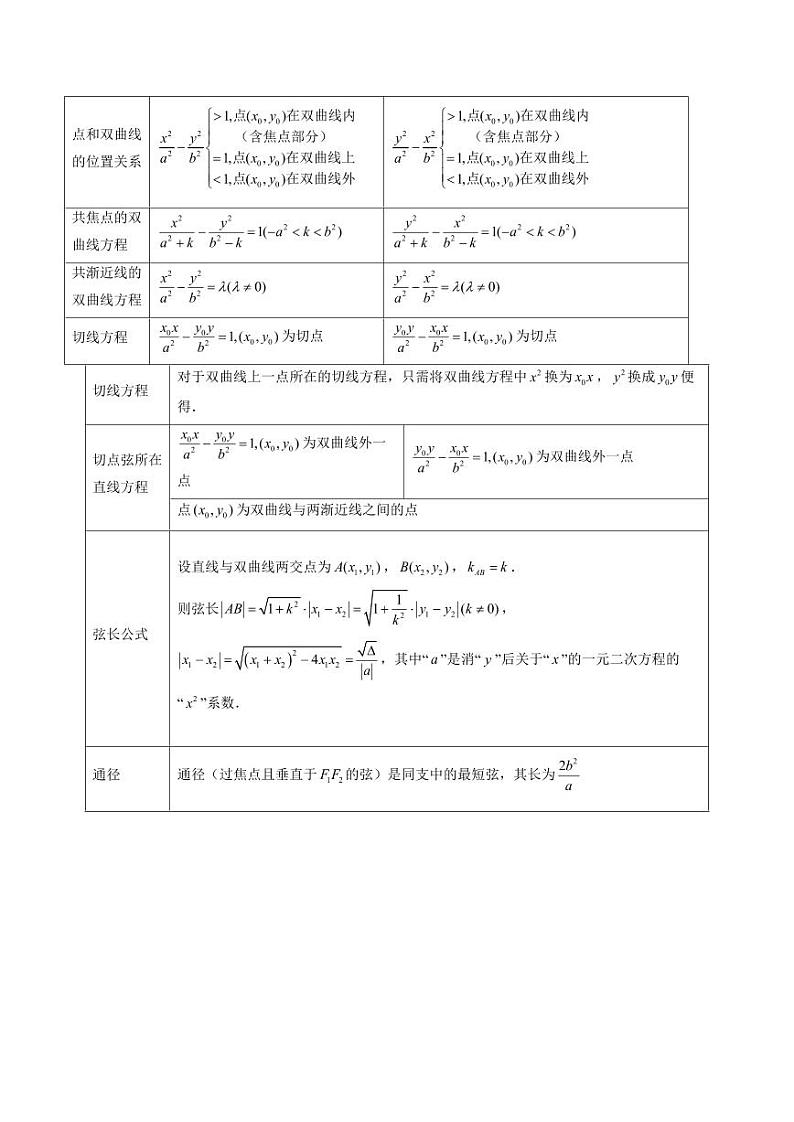 点和双曲线的位置关系
$\frac{x^2}{a^2}-\frac{y^2}{b^2}\begin{cases}>1,点(x_0,y_0)在双曲线内\\(含焦点部分)\\=1,点(x_0,y_0)在双曲线上\\<1,点(x_0,y_0)在双曲线外\end{cases}$
$\frac{y^2}{a^2}-\frac{x^2}{b^2}\begin{cases}>1,点(x_0,y_0)在双曲线内\\(含焦点部分)\\=1,点(x_0,y_0)在双曲线上\\<1,点(x_0,y_0)在双曲线外\end{cases}$
共焦点的双曲线方程
$\frac{x^2}{a^2+k}-\frac{y^2}{b^2-k}=1(-a^2<k<b^2)$
$\frac{y^2}{a^2+k}-\frac{x^2}{b^2-k}=1(-a^2<k<b^2)$
共渐近线的双曲线方程
$\frac{x^2}{a^2}-\frac{y^2}{b^2}=\lambda(\lambda\neq 0)$
$\frac{y^2}{a^2}-\frac{x^2}{b^2}=\lambda(\lambda\neq 0)$
切线方程
$\frac{x_0x}{a^2}-\frac{y_0y}{b^2}=1,(x_0,y_0)$ 为切点
$\frac{y_0y}{a^2}-\frac{x_0x}{b^2}=1,(x_0,y_0)$ 为切点
切线方程
对于双曲线上一点所在的切线方程，只需将双曲线方程中 $x^2$ 换为 $x_0x$，$y^2$ 换成 $y_0y$ 便
得．
切点弦所在
直线方程
$\frac{x_0x}{a^2}-\frac{y_0y}{b^2}=1,(x_0,y_0)$ 为双曲线外一
点
$\frac{y_0y}{a^2}-\frac{x_0x}{b^2}=1,(x_0,y_0)$ 为双曲线外一点
点 $(x_0,y_0)$ 为双曲线与两渐近线之间的点
弦长公式
设直线与双曲线两交点为 $A(x_1,y_1)$，$B(x_2,y_2)$，$k_{AB}=k$．
则弦长 $|AB|=\sqrt{1+k^2}\cdot|x_1-x_2|=\sqrt{1+\frac{1}{k^2}}\cdot|y_1-y_2|(k\neq 0)$，
$|x_1-x_2|=\sqrt{(x_1+x_2)^2-4x_1x_2}=\frac{\sqrt{\Delta}}{|a|}$，其中“$a$”是消“$y$”后关于“$x$”的一元二次方程的
“$x^2$”系数．
通径
通径（过焦点且垂直于 $F_1F_2$ 的弦）是同支中的最短弦，其长为 $\frac{2b^2}{a}$